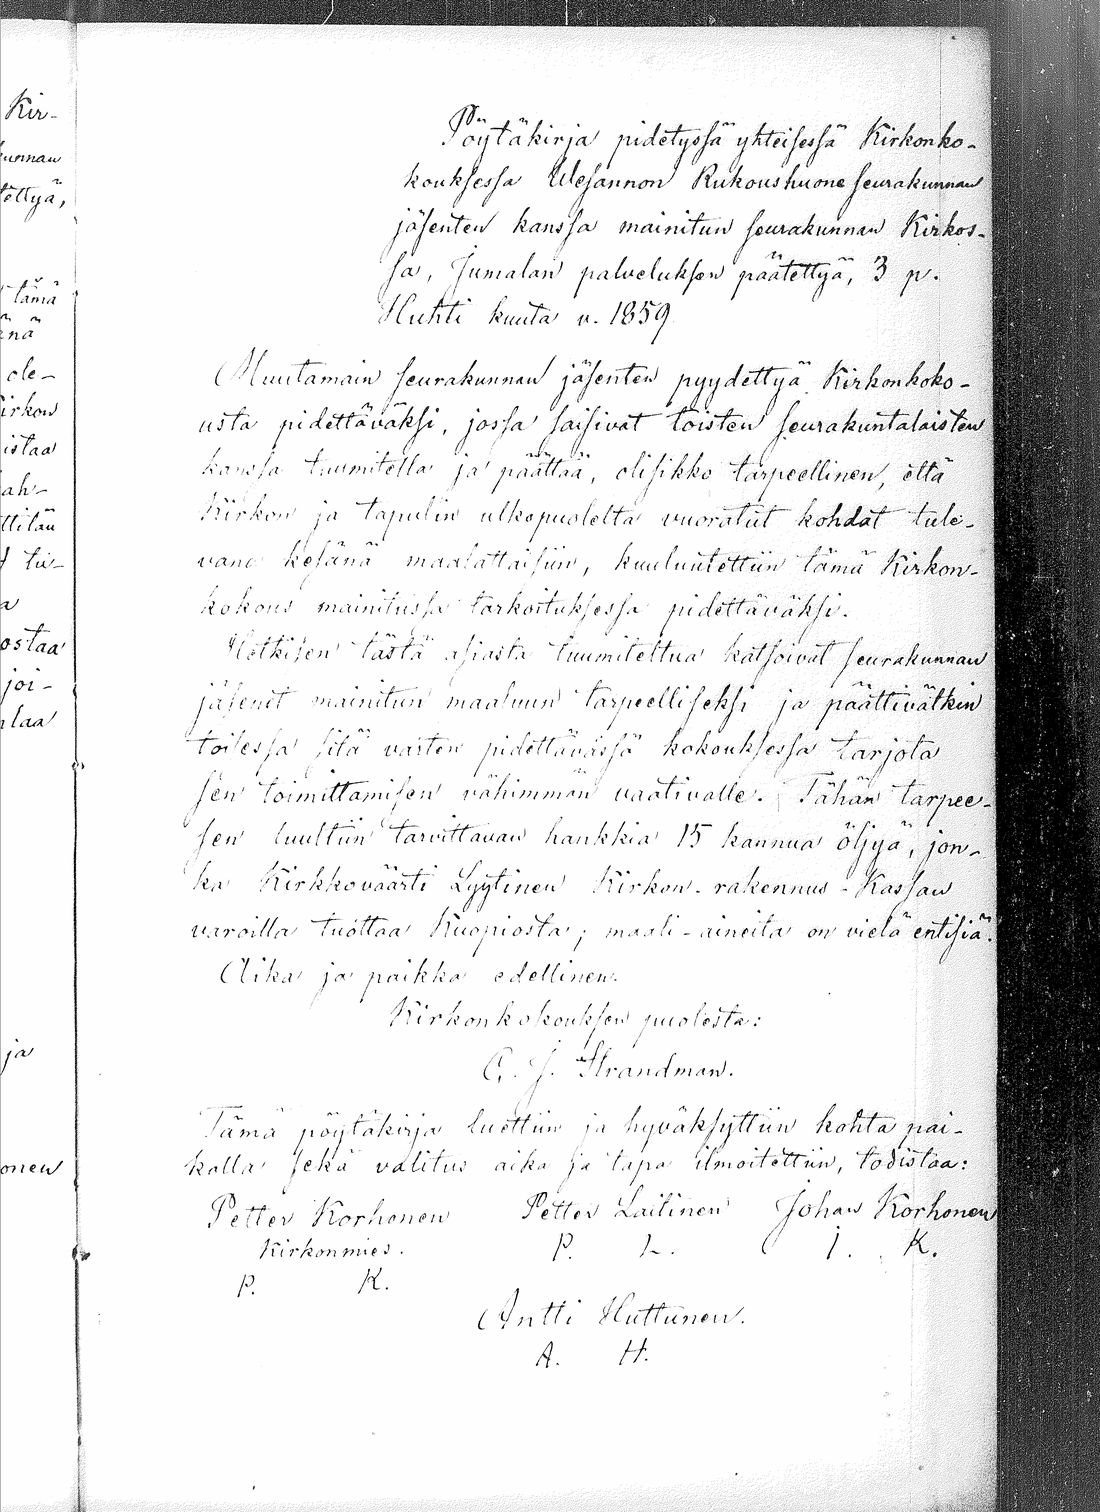 Kir-
kunnan
tettyä,
tämä
änä
ole-
irkon
istaa
ah-
ttilau
tu-
a
ostaa
joi-
laa
ja
onen
Pöytäkirja pidetyssä yhteisessä Kirkonko-
kouksessa Wesannon Rukoushuone seurakunnan
jäsenten kanssa mainitun seurakunnan Kirkos-
sa, Jumalan palveluksen päätettyä, 3 p.
Huhti kuuta v. 1859
Muutamain seurakunnan jäsenten pyydettyä Kirkonkoko-
usta pidettäväksi, jossa saisivat toisten seurakuntalaisten
kanssa tuumitella ja päättää, olisikko tarpeellinen, että
Kirkon ja tapulin ulkopuolelta vuoratut kohdat tule-
vana kesänä maalattaisiin, kuuluutettiin tämä Kirkon-
kokous mainitussa tarkoituksessa pidettäväksi.
Hetkisen tästä asiasta tuumiteltua katsoivat seurakunnan
jäsenet mainitun maaluun tarpeelliseksi ja päättivätkin
toisessa sitä varten pidettävässä kokouksessa tarjota
sen toimittamisen vähimmän vaativalle. Tähän tarpee-
sen luultiin tarvittavan hankkia 15 kannua öljyä, jon-
ka Kirkkoväärti Lyytinen Kirkon-rakennus-Kassan
varoilla tuottaa Kuopiosta; maali-aineita on vielä entisiä.
Aika ja paikka edellinen.
Kirkonkokouksen puolesta:
C. J. Strandman.
Tämä pöytäkirja luettiin ja hyväksyttiin kohta pai-
kalla sekä valitus aika ja tapa ilmoitettiin, todistaa:
Petter Korhonen Petter Laitinen Johan Korhonen
Kirkonmies. P. L. J. K.
P. K.
Antti Huttunen.
A. H.